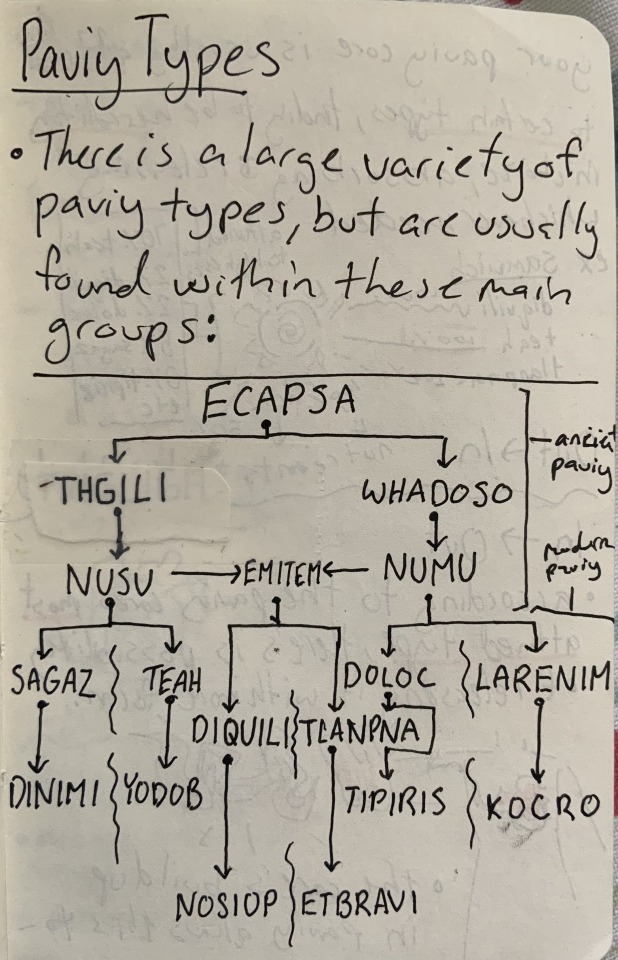 Paviy Types
• There is a large variety of
paviy types, but are usually
found within these main
groups:
ECAPSA
ancient
paviy
THGILI WHADOSO
modern
paviy
NUSU EMITEM NUMU
SAGAZ TEAH DOLOC LARENIM
DIQUILI TLANPNA
DINIMI YODOB TIPIRIS KOCRO
NOSIOP ETBRAVI